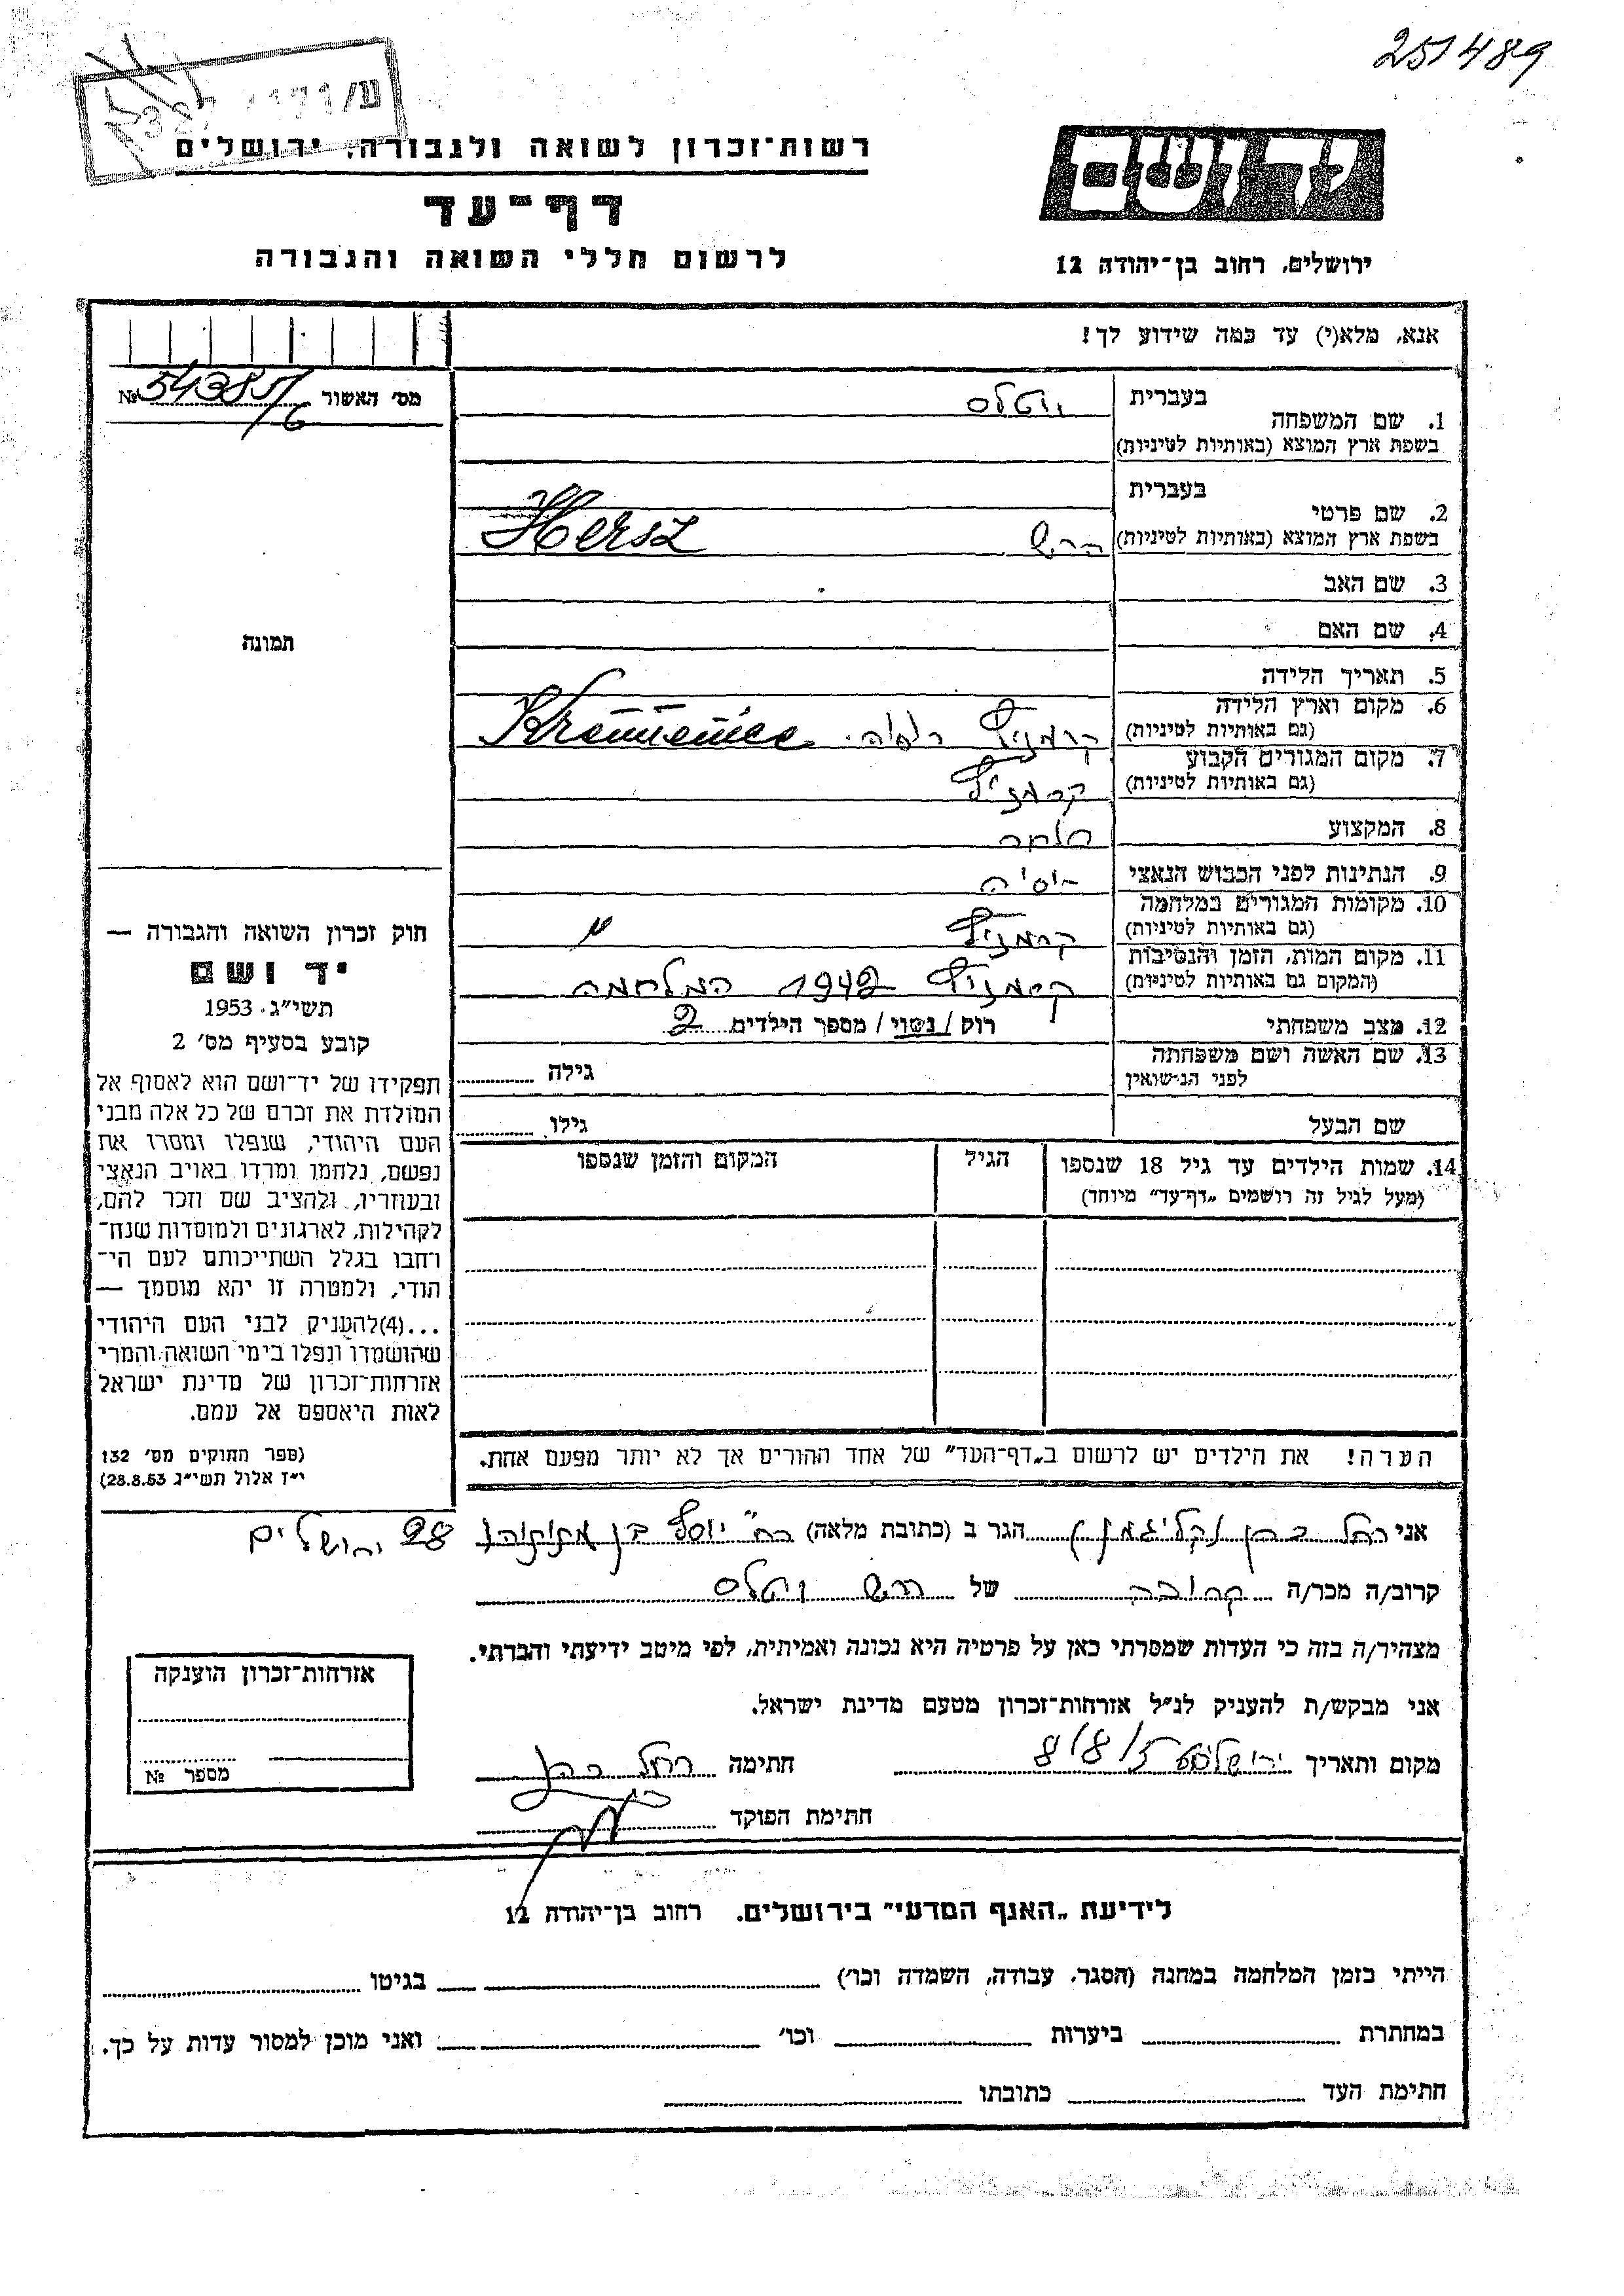 251489
ידושם
רשות־זכרון לשואה ולגבורה, ירושלים
דף־עד
לרשום חללי השואה והגבורה
ירושלים, רחוב בן־יהודה 12
אנא, מלא(י) עד כמה שידוע לך!
מס׳ האשור № 54385/6
תמונה
1. שם המשפחה
בעברית
בשפת ארץ המוצא (באותיות לטיניות)
2. שם פרטי
בעברית
בשפת ארץ המוצא (באותיות לטיניות) הרש Hersz
3. שם האב
4. שם האם
5. תאריך הלידה
6. מקום וארץ הלידה
(גם באותיות לטיניות) קרמניץ רוסיה. Krzemieniec
7. מקום המגורים הקבוע
(גם באותיות לטיניות) קרמניץ
8. המקצוע סוחר
9. הנתינות לפני הכבוש הנאצי רוסיה
10. מקומות המגורים במלחמה
(גם באותיות לטיניות) קרמניץ
11. מקום המות, הזמן והנסיבות
(המקום גם באותיות לטיניות) קרמניץ 1942 המלחמה
12. מצב משפחתי רווק / נשוי / מספר הילדים 2
13. שם האשה ושם משפחתה
לפני הנישואין גילה
שם הבעל גילו
14. שמות הילדים עד גיל 18 שנספו הגיל המקום והזמן שנספו
(מעל לגיל זה רושמים „דף־עד״ מיוחד)
הערה! את הילדים יש לרשום ב„דף־העד״ של אחד ההורים אך לא יותר מפעם אחת.
חוק זכרון השואה והגבורה —
יד ושם
תשי״ג. 1953
קובע בסעיף מס׳ 2
תפקידו של יד־ושם הוא לאסוף אל
המולדת את זכרם של כל אלה מבני
העם היהודי, שנפלו ומסרו את
נפשם, נלחמו ומרדו באויב הנאצי
ובעוזריו, ולהציב שם וזכר להם,
לקהילות, לארגונים ולמוסדות שנח־
רחבו בגלל השתייכותם לעם הי־
הודי, ולמטרה זו יהא מוסמך —
...(4)להעניק לבני העם היהודי
שהושמדו ונפלו בימי השואה והמרי
אזרחות־זכרון של מדינת ישראל
לאות היאספם אל עמם.
(ספר החוקים מס׳ 132
י״ז אלול תשי״ג 28.8.53)
אני רחל כהן (קליגמן) הגר ב (כתובת מלאה) רח׳ יוסף בן מתתיהו 28 ירושלים
קרוב/ה מכר/ה קרובה של הרש
מצהיר/ה בזה כי העדות שמסרתי כאן על פרטיה היא נכונה ואמיתית, לפי מיטב ידיעתי והכרתי.
אני מבקש/ת להעניק לנ״ל אזרחות־זכרון מטעם מדינת ישראל.
מקום ותאריך ירושלים 8/8/5 חתימה רחל כהן
חתימת הפוקד
אזרחות־זכרון הוענקה
מספר №
לידיעת „האנף המדעי״ בירושלים. רחוב בן־יהודה 12
הייתי בזמן המלחמה במחנה (הסגר, עבודה, השמדה וכו׳) בגיטו
במחתרת ביערות וכו׳ ואני מוכן למסור עדות על כך.
חתימת העד כתובתו